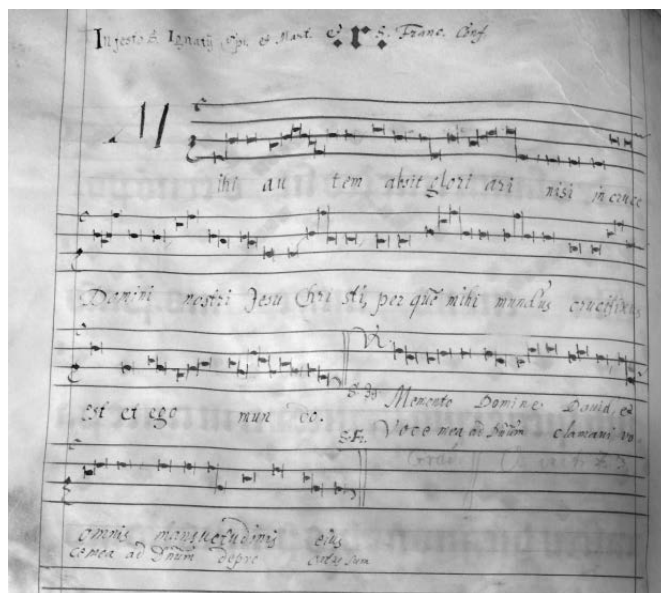 In festo S. Ignatij Epi. et Mart. et S. Franc. Conf.
M ihi au tem absit glori ari nisi in cruce
Domini nostri Jesu Chri sti, per quē mihi mundus crucifixus
est et ego mun do.
Memento Domine David, et
Voce mea ad Dnūm clamavi vo
omnis mansuetudinis eius
ce mea ad Dnūm depre catus sum